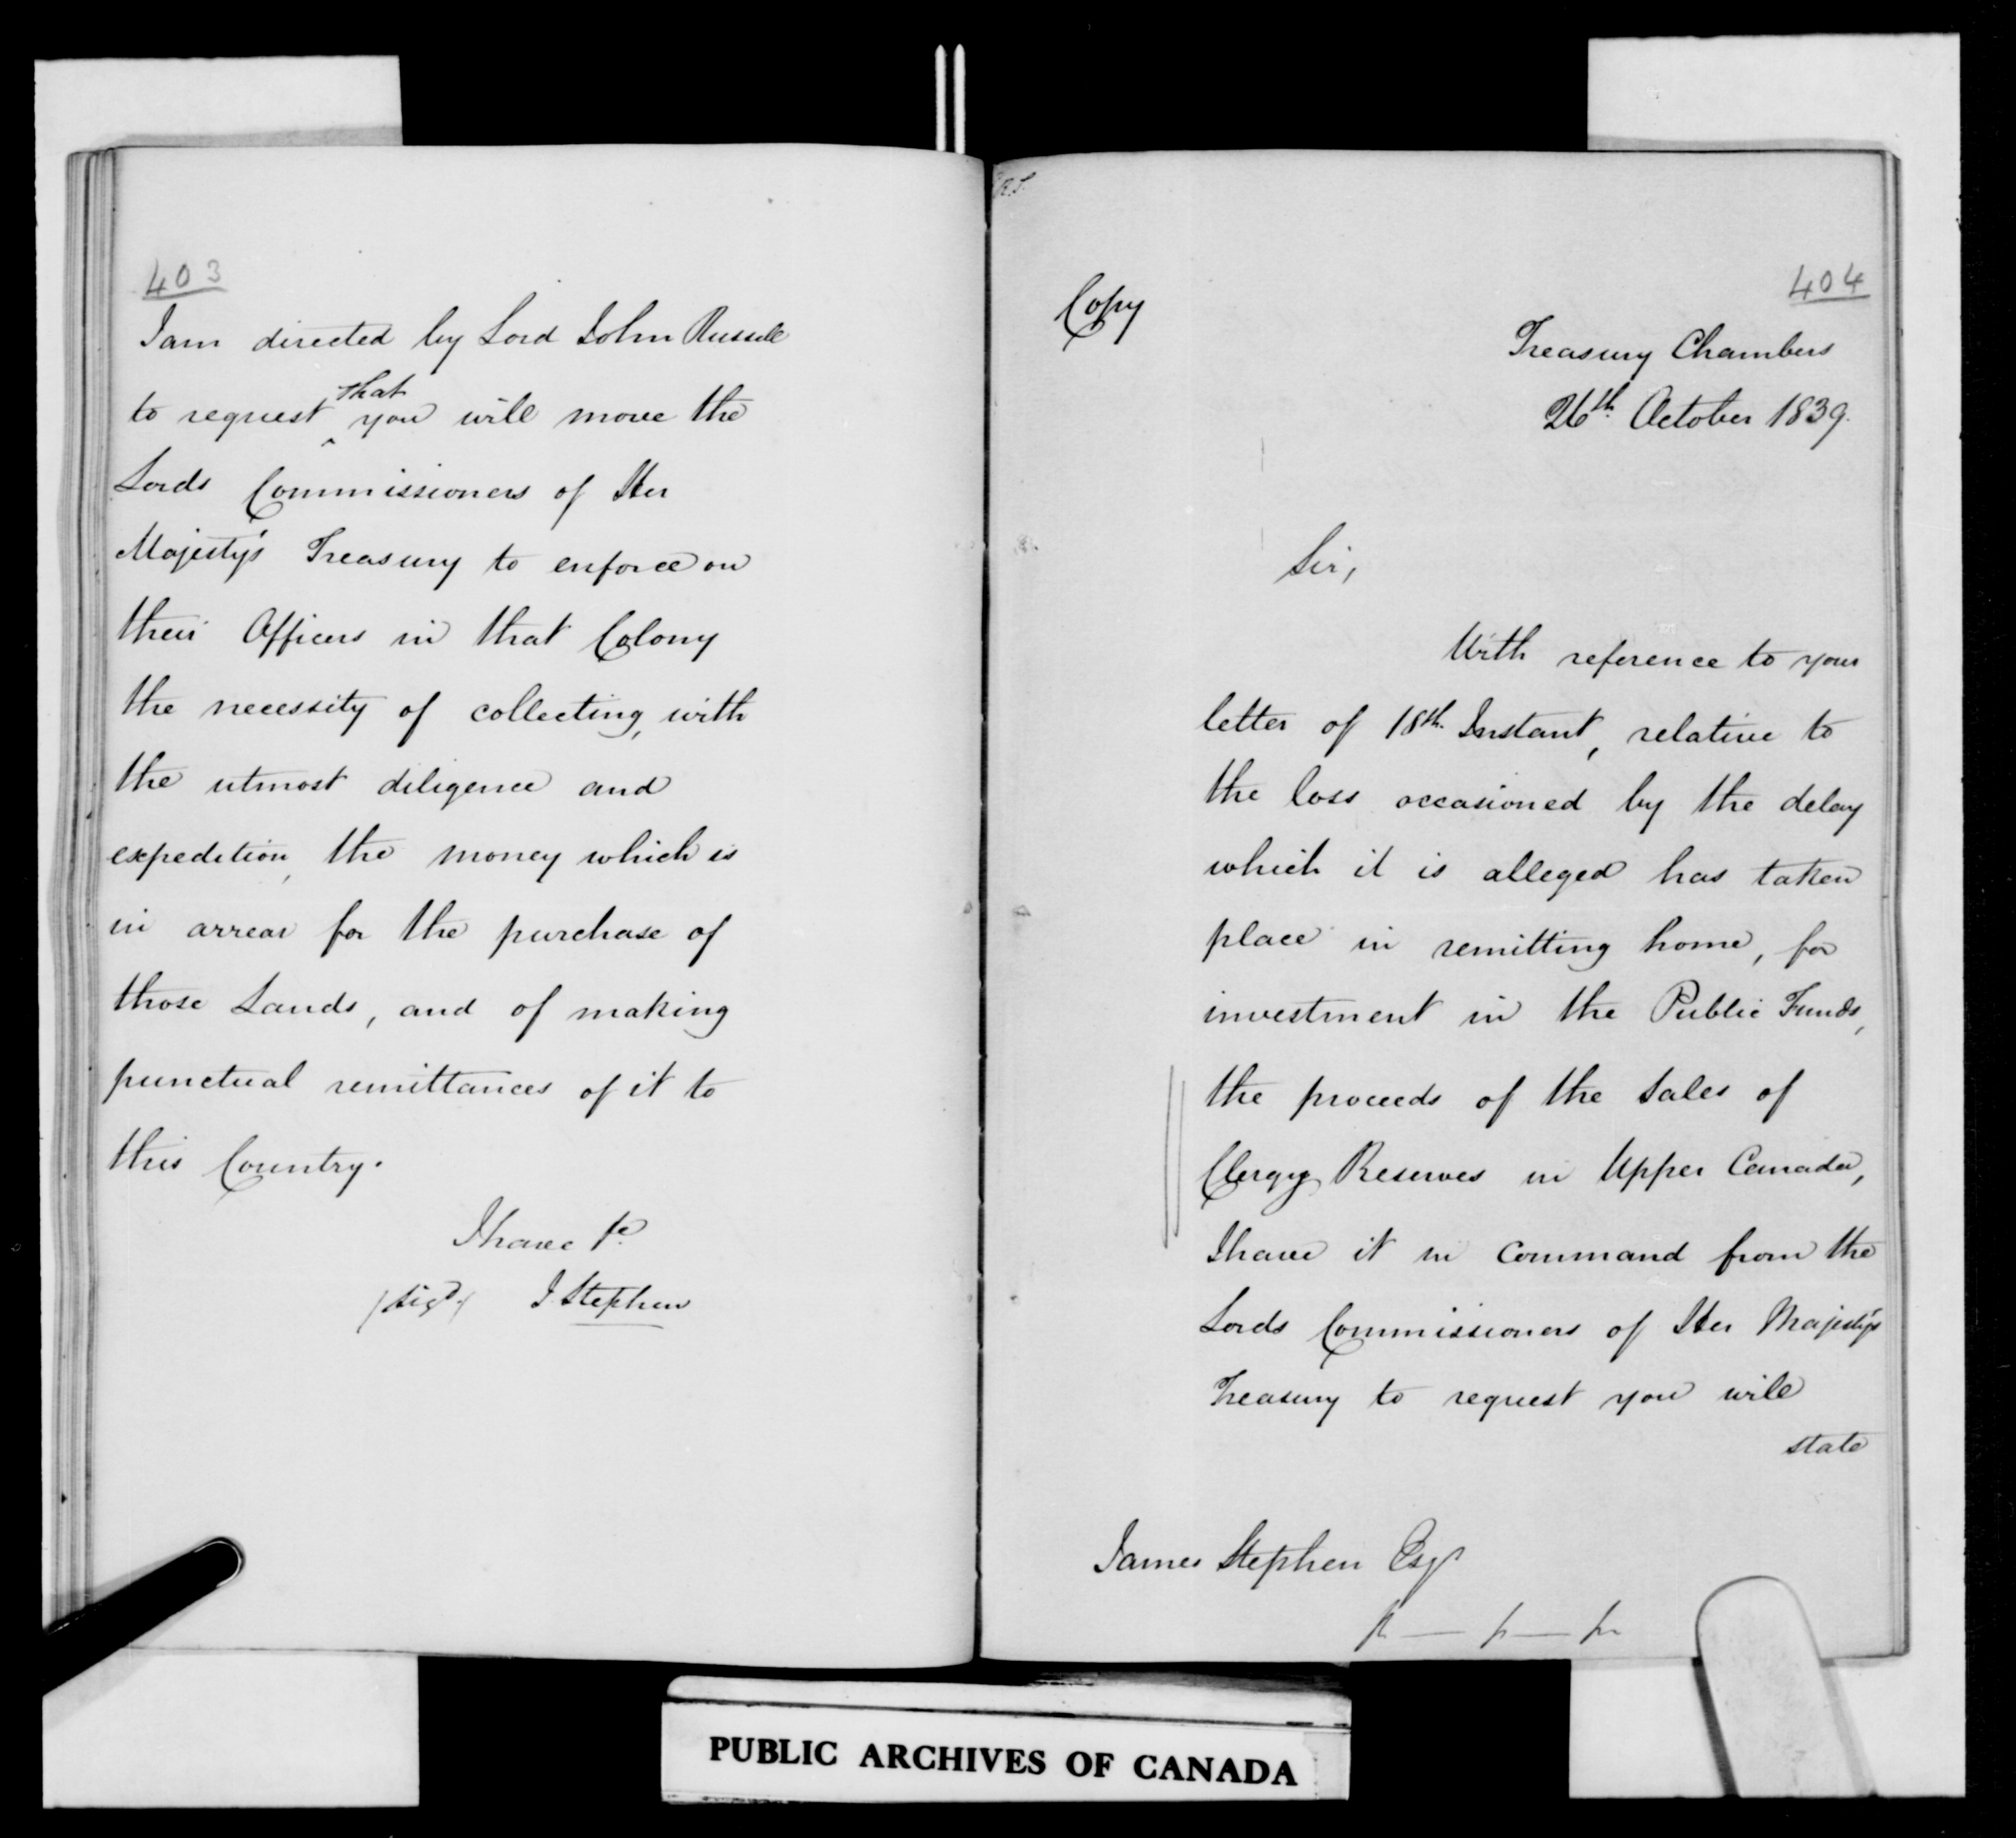 403
I am directed by Lord John Russell
to request that you will move the
Lords Commissioners of Her
Majesty's Treasury to enforce on
their Officers in that Colony
the necessity of collecting, with
the utmost diligence and
expedition, the money which is
in arrear for the purchase of
those Lands, and of making
punctual remittances of it to
this Country.
I have &c
(sigd) J Stephen
R.S.
404
Copy
Treasury Chambers
26th October 1839.
Sir,
With reference to your
letter of 18th Instant, relative to
the loss occasioned by the delay
which it is alleged has taken
place in remitting home, for
investment in the Public Funds,
the proceeds of the Sales of
Clergy Reserves in Upper Canada,
I have it in Command from the
Lords Commissioners of Her Majesty's
Treasury to request you will
state
James Stephen Esqr
&c — &c — &c
PUBLIC ARCHIVES OF CANADA